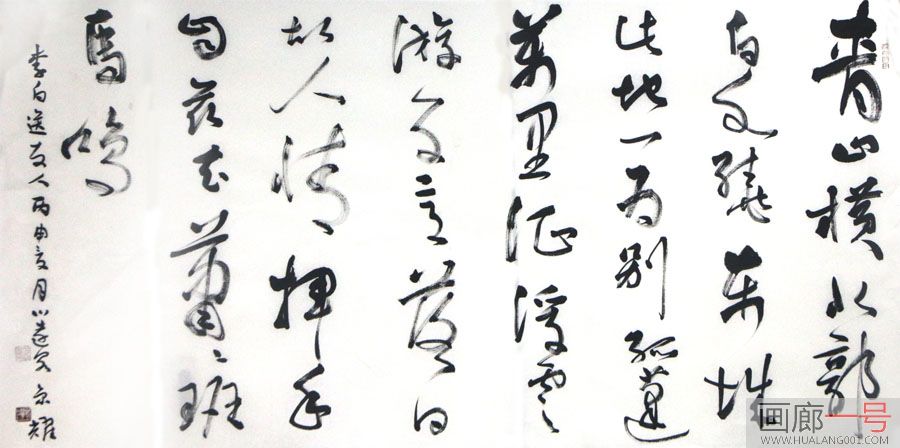 青山横北郭
白水繞東城
此地一为别孤蓬
萬里征浮雲
游子意落日
故人情揮手
自兹去蕭々班
馬鳴
李白送友人丙申夏月京耀
画廊一号
WWW.HUALANG001.COM